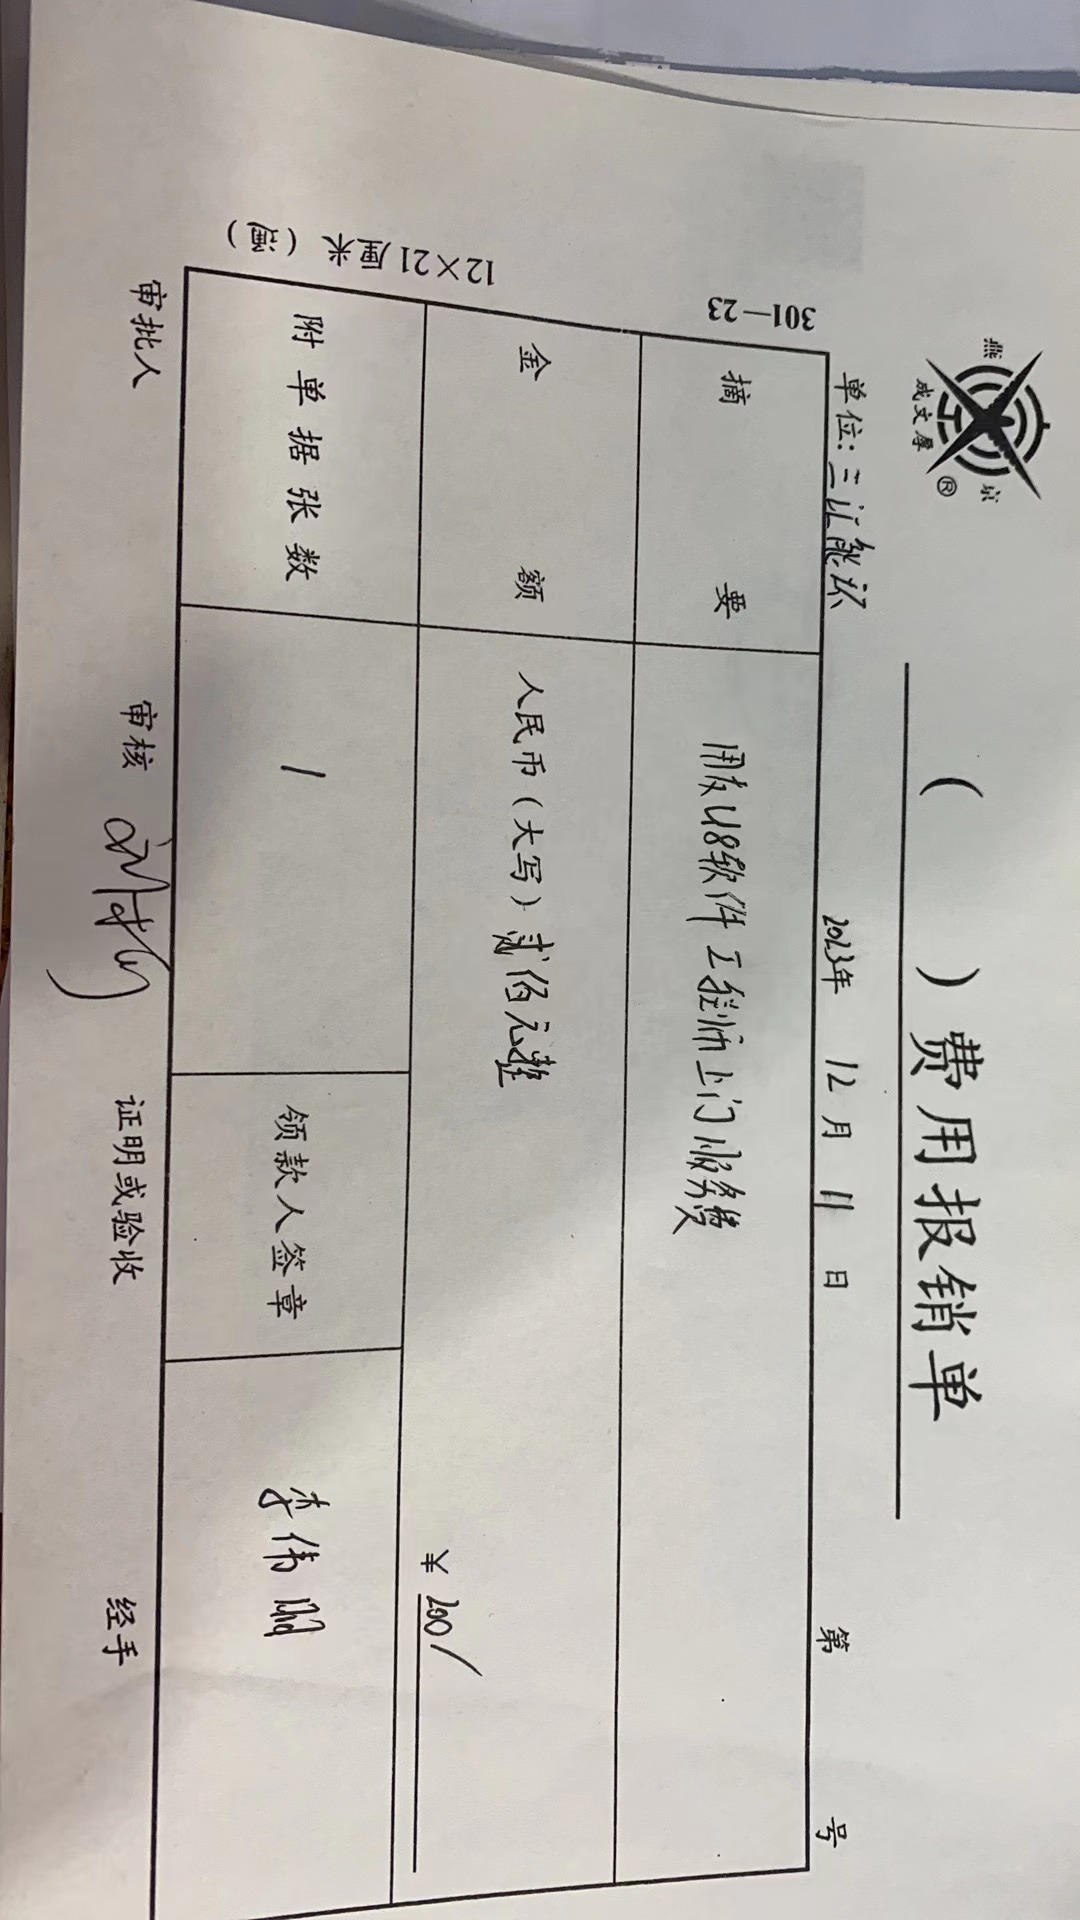 燕京
成文厚®
( )费用报销单
单位:三江能源 2023年 12月 11日 第 号
301—23
摘要 用友U8软件工程师上门服务费
金额 人民币(大写)贰佰元整 ¥200/
附单据张数 1 领款人签章 李伟
12×21厘米
审批人 审核 证明或验收 经手